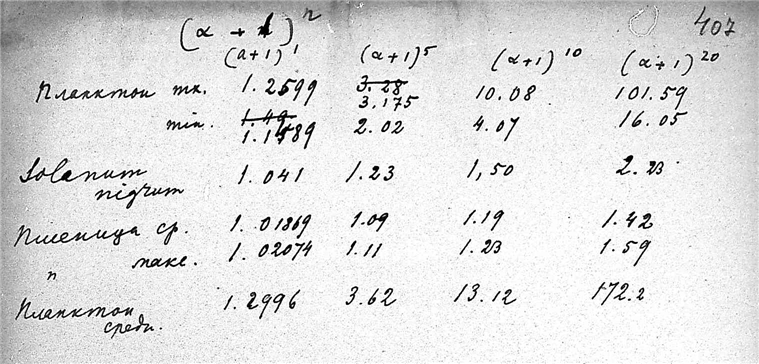 (α + 1)ⁿ 407
(a+1)¹ (α+1)⁵ (α+1)¹⁰ (α+1)²⁰
Планктон тк. 1.2599 3.28 10.08 101.59
3.175
min. 1.49 2.02 4.07 16.05
1.1589
Solanum 1.041 1.23 1,50 2.23
nigrum
Пшеница ср. 1.01869 1.09 1.19 1.42
" макс. 1.02074 1.11 1.23 1.59
Планктон 1.2996 3.62 13.12 172.2
средн.